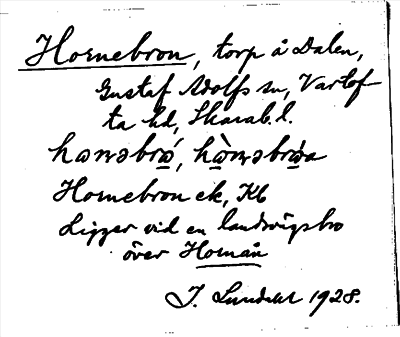 Hornebron, torp å Dalen,
Gustaf Adolfs sn, Vartof-
ta hd, Skarab. l.
Hornebron ek, Kb
Ligger vid en landsvägsbro
över Hornån
J. Lundahl 1928.